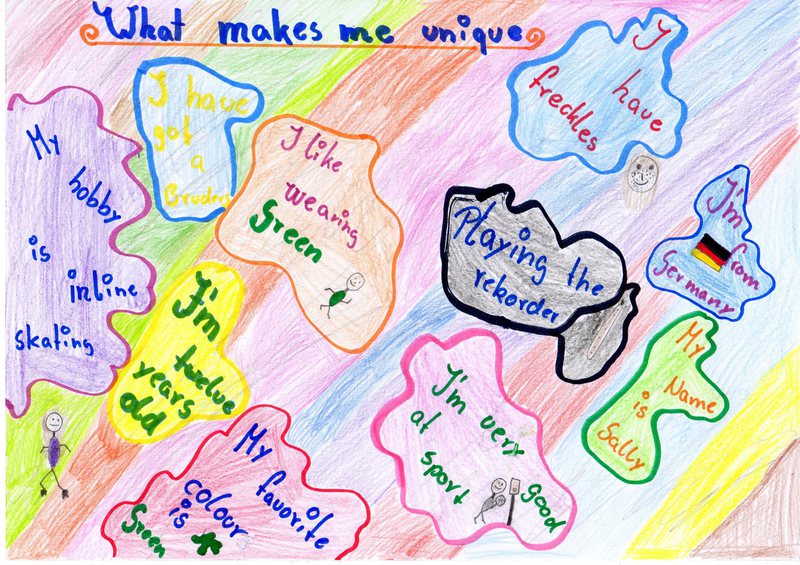 What makes me unique
I
have
freckles
I have
got
a
Bruder
My
hobby
is
inline
skating
I like
wearing
Green
Playing the
rekorder
I'm
from
Germany
I'm
twelve
years
old
My
Name
is
Sally
I'm very
good
at
sport
My
favorite
colour
is
Green